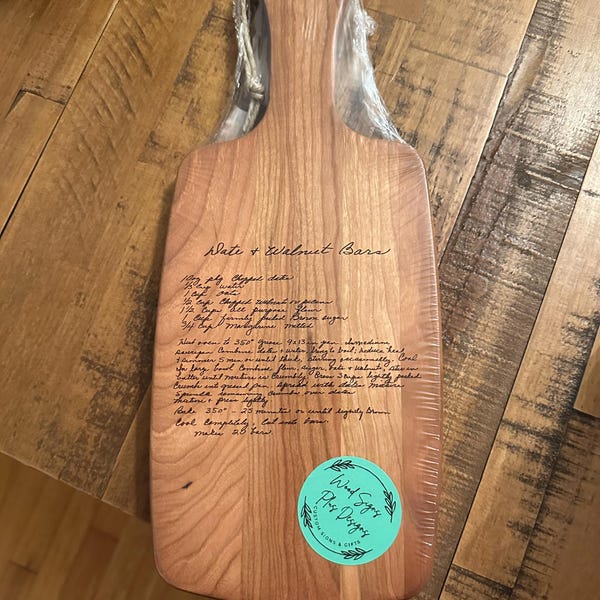 Date + Walnut Bars
10oz pkg Chopped dates
½ Cup water
1 Cup oats
½ Cup Chopped Walnuts or pecans
1½ Cups all purpose flour
1 Cup firmly packed Brown sugar
3/4 Cup Margarine melted
Heat oven to 350° Grease 9x13 in pan In medium
Saucepan Combine dates + water bring to boil, reduce heat
+ simmer 5 min or until thick, stirring occasionally. Cool
In large bowl Combine flour, sugar, oats + walnuts, stir in
butter until mixture is Crumbly. Press 3 cups lightly packed
Crumbs into greased pan. Spread with dates mixture
Sprinkle remaining Crumbs over dates
Mixture + press lightly
Bake 350° - 25 minutes or until lightly Brown
Cool Completely, Cut into bars.
makes 20 bars
Wood Signs
Plus Designs
CUSTOM SIGNS & GIFTS